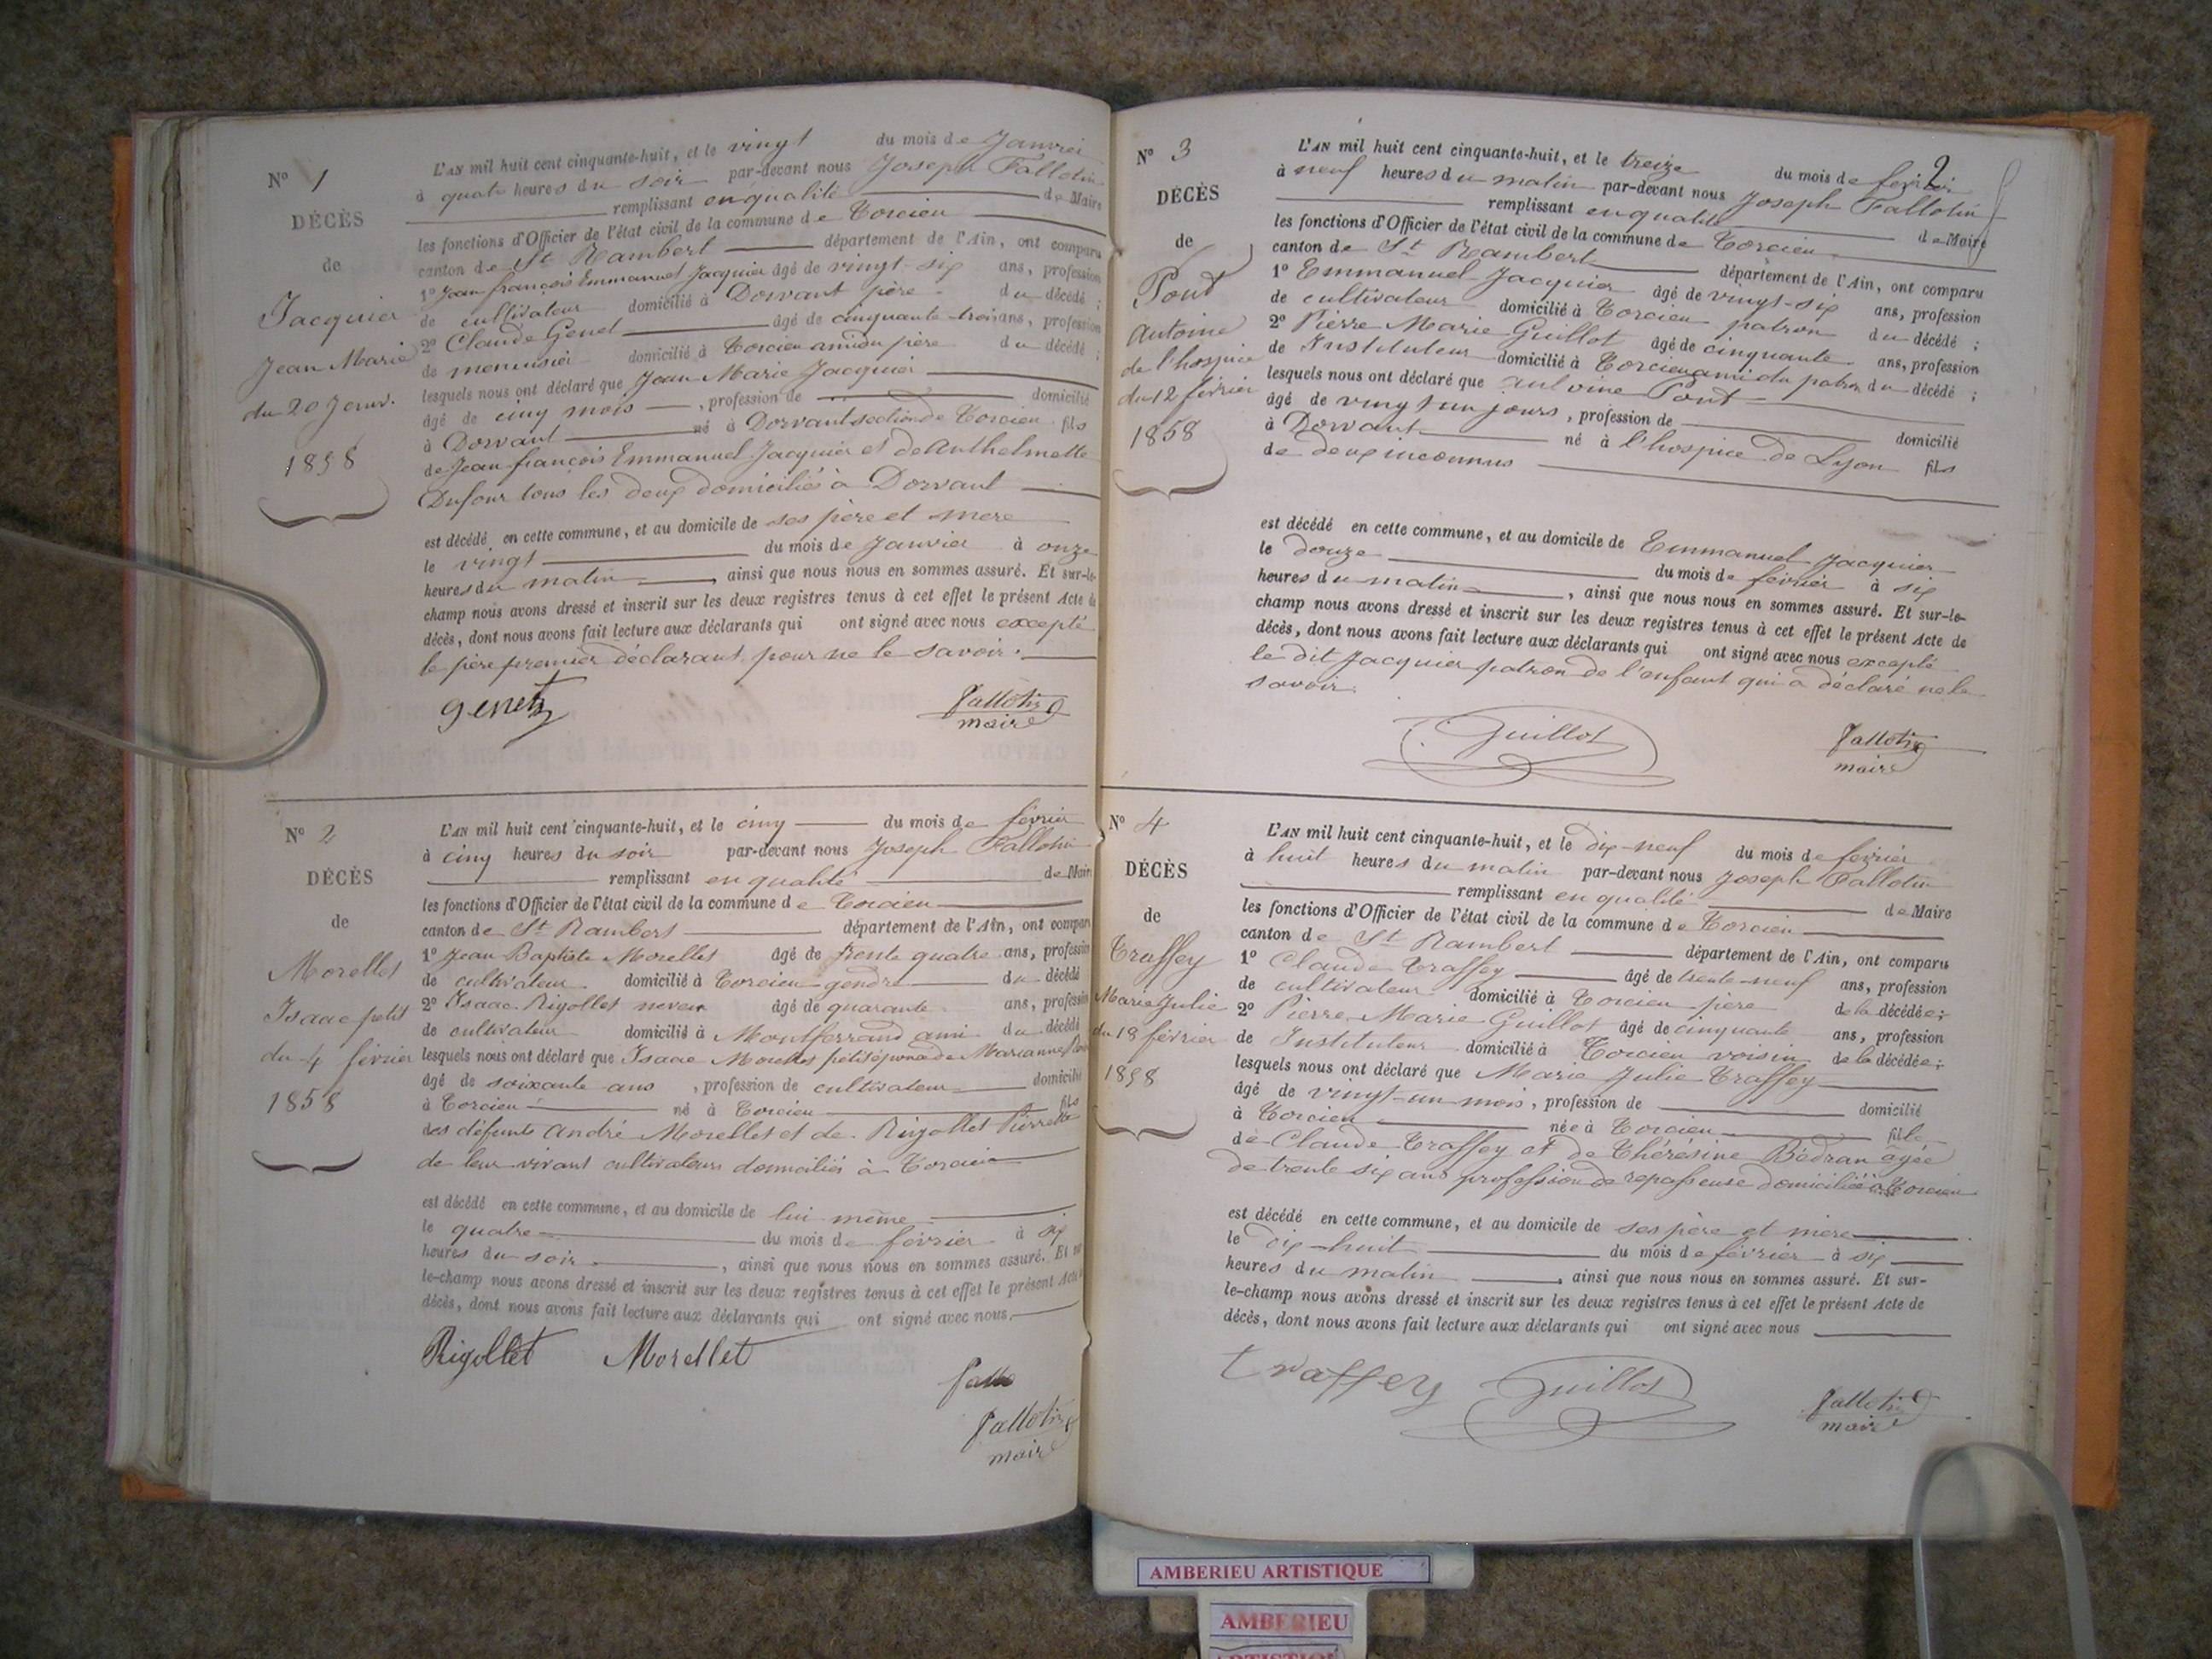 N° 1
DÉCÈS
de
Jacquier
Jean Marie
du 20 Janv.
1858
L'AN mil huit cent cinquante-huit, et le vingt du mois de Janvier
à quatre heures du soir par-devant nous Joseph Fallotin
remplissant en qualité de Maire
les fonctions d'Officier de l'état civil de la commune de Torcieu
canton de St Rambert département de l'Ain, ont comparu
1° Jean françois Emmanuel Jacquier âgé de vingt-six ans, profession
de cultivateur domicilié à Dorvant père du décédé ;
2° Claude Genet âgé de cinquante-trois ans, profession
de menuisier domicilié à Torcieu ami du père du décédé ;
lesquels nous ont déclaré que Jean Marie Jacquier
âgé de cinq mois, profession de domicilié
à Dorvant né à Dorvant section de Torcieu fils
de Jean françois Emmanuel Jacquier et de Anthelmette
Dufour tous les deux domiciliés à Dorvant
est décédé en cette commune, et au domicile de ses père et mère
le vingt du mois de Janvier à onze
heures du matin, ainsi que nous nous en sommes assuré. Et sur-le-
champ nous avons dressé et inscrit sur les deux registres tenus à cet effet le présent Acte de
décès, dont nous avons fait lecture aux déclarants qui ont signé avec nous excepté
le père premier déclarant pour ne le savoir.
genet
fallotin
maire
N° 2
DÉCÈS
de
Morellet
Isaac petit
du 4 février
1858
L'AN mil huit cent cinquante-huit, et le cinq du mois de février
à cinq heures du soir par-devant nous Joseph Fallotin
remplissant en qualité de Maire
les fonctions d'Officier de l'état civil de la commune de Torcieu
canton de St Rambert département de l'Ain, ont comparu
1° Jean Baptiste Morellet âgé de trente quatre ans, profession
de cultivateur domicilié à Torcieu gendre du décédé
2° Isaac Rigollet neveu âgé de quarante ans, profession
de cultivateur domicilié à Montferrand ami du décédé
lesquels nous ont déclaré que Isaac Morellet petit époux de Marianne
âgé de soixante ans, profession de cultivateur domicilié
à Torcieu né à Torcieu fils
des défunts André Morellet et de Rigollet Pierrette
de leur vivant cultivateurs domiciliés à Torcieu
est décédé en cette commune, et au domicile de lui même
le quatre du mois de février à six
heures du soir, ainsi que nous nous en sommes assuré. Et sur-
le-champ nous avons dressé et inscrit sur les deux registres tenus à cet effet le présent Acte de
décès, dont nous avons fait lecture aux déclarants qui ont signé avec nous.
Rigollet Morellet
fallo
fallotin
maire
2
N° 3
DÉCÈS
de
Pont
Antoine
de l'hospice
du 12 février
1858
L'AN mil huit cent cinquante-huit, et le treize du mois de février
à neuf heures du matin par-devant nous Joseph Fallotin
remplissant en qualité de Maire
les fonctions d'Officier de l'état civil de la commune de Torcieu
canton de St Rambert département de l'Ain, ont comparu
1° Emmanuel Jacquier âgé de vingt-six ans, profession
de cultivateur domicilié à Torcieu patron du décédé ;
2° Pierre Marie Guillot âgé de cinquante ans, profession
de Instituteur domicilié à Torcieu ami du patron du décédé ;
lesquels nous ont déclaré que Pont
âgé de vingt un jours, profession de domicilié
à Dorvant né à l'hospice de Lyon fils
de deux inconnus
est décédé en cette commune, et au domicile de Emmanuel Jacquier
le douze du mois de février à six
heures du matin, ainsi que nous nous en sommes assuré. Et sur-le-
champ nous avons dressé et inscrit sur les deux registres tenus à cet effet le présent Acte de
décès, dont nous avons fait lecture aux déclarants qui ont signé avec nous excepté
le dit Jacquier patron de l'enfant qui a déclaré ne le
savoir.
Guillot
fallotin
maire
N° 4
DÉCÈS
de
Traffey
Marie Julie
du 18 février
1858
L'AN mil huit cent cinquante-huit, et le dix-neuf du mois de février
à huit heures du matin par-devant nous Joseph Fallotin
remplissant en qualité de Maire
les fonctions d'Officier de l'état civil de la commune de Torcieu
canton de St Rambert département de l'Ain, ont comparu
1° Claude Traffey âgé de trente-neuf ans, profession
de cultivateur domicilié à Torcieu père de la décédée ;
2° Pierre Marie Guillot âgé de cinquante ans, profession
de Instituteur domicilié à Torcieu voisin de la décédée ;
lesquels nous ont déclaré que Marie Julie Traffey
âgé de vingt-un mois, profession de domicilié
à Torcieu née à Torcieu fille
de Claude Traffey et de Thérésine Bédran âgée
de trente six ans profession de repasseuse domiciliée à Torcieu
est décédé en cette commune, et au domicile de ses père et mère
le dix-huit du mois de février à six
heures du matin, ainsi que nous nous en sommes assuré. Et sur-
le-champ nous avons dressé et inscrit sur les deux registres tenus à cet effet le présent Acte de
décès, dont nous avons fait lecture aux déclarants qui ont signé avec nous
traffey Guillot
fallotin
maire
AMBERIEU ARTISTIQUE
AMBERIEU
ARTISTIQUE